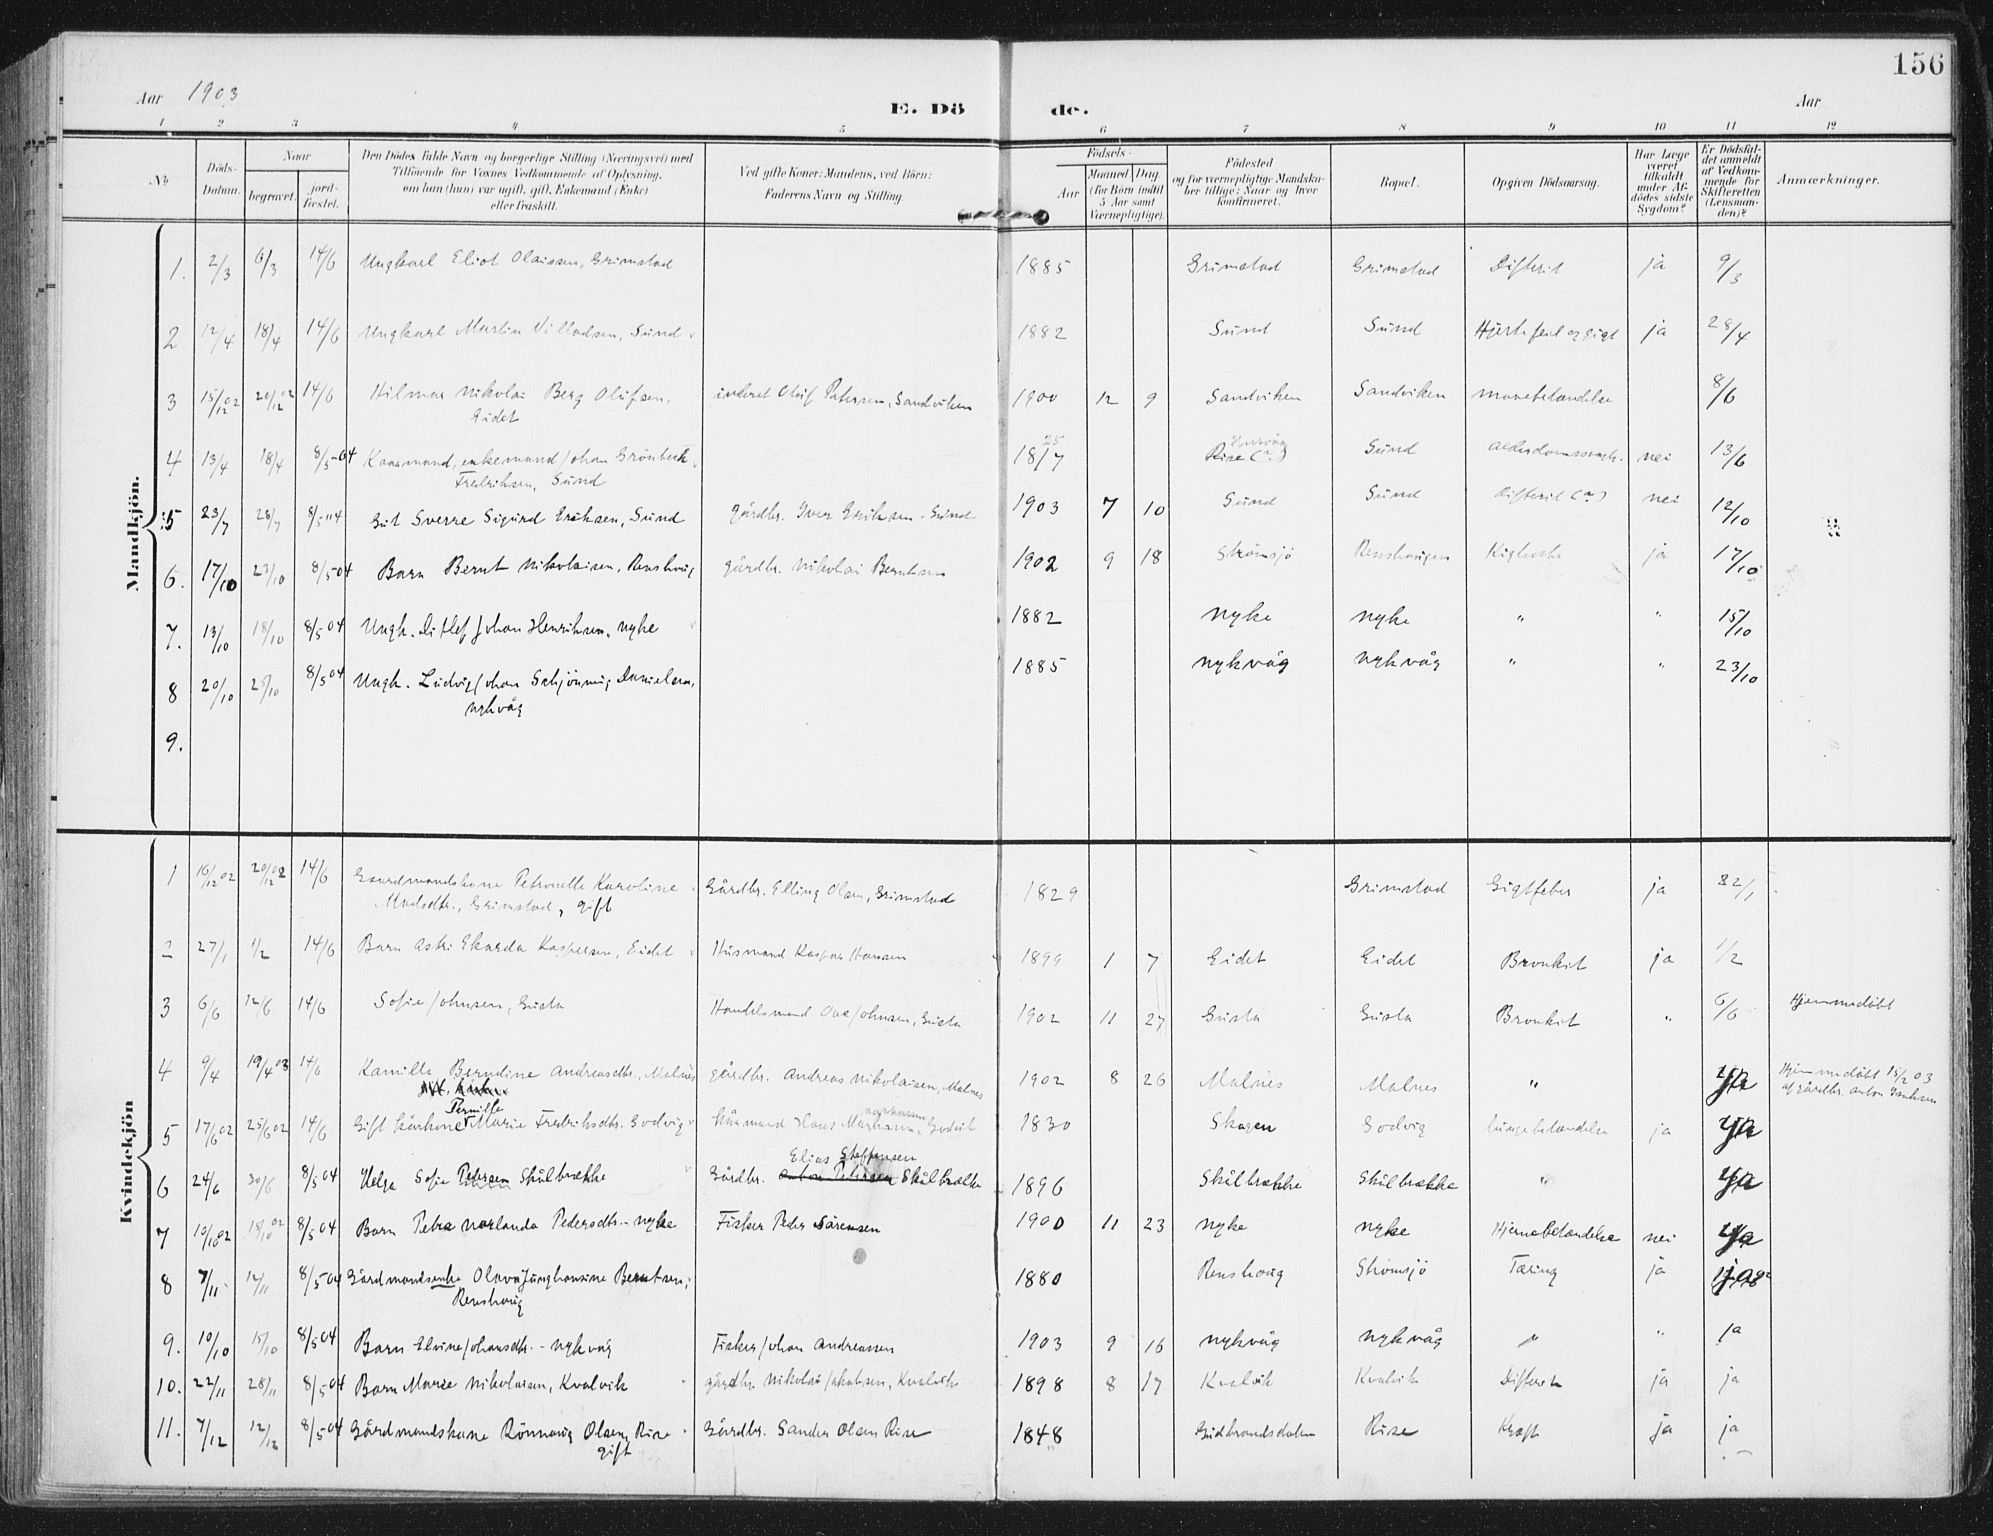 156
Aar 1903
E. Dö
de.
Aar
1 2 3 4 5 6 7 8 9 10 11 12
No
Döds-
Datum.
Naar
begravet.
jord-
fæstet.
Den Dödes fulde Navn og borgerlige Stilling (Næringsvei) med
Tilföiende for Voxnes Vedkommende af Oplysning,
om han (hun) var ugift, gift, Enkemand (Enke)
eller fraskilt.
Ved gifte Koner: Mandens, ved Börn:
Faderens Navn og Stilling
Födsels-
Aar
Maaned Dag
(for Börn indtil
5 Aar samt
Værnepligtige).
Födested
og for værnepligtige Mandska-
ber tillige: Naar og hvor
konfirmeret.
Bopæl.
Opgiven Dödsaarsag.
Har Læge
været
tilkaldt
under Af-
dödes sidste
Sygdom?
Er Dödsfal-
det anmeldt
af Vedkom-
mende for
Skifteretten
(Lensman-
den)?
Anmærkninger.
Mandkjön.
1. 2/3 6/3 14/6 Ungkarl Eliot Olaissen, Grimstad 1885 Grimstad Grimstad Difterit ja 9/3
2 12/4 18/4 14/6 Ungkarl Martin Villadsen, Sund 1882 Sund Sund Hjertefeil og Gigt ja 28/4
3 15/12 02 20/12 02 14/6 Hilmar Nikolai Berg Olufsen, Oluf Petersen, Sandviken 1900 12 9 Sandviken Sandviken Mavebetændelse 8/6
Eidet
4 13/4 18/4 8/5-04 enkemand Johan Grönbeck 25 1817 Rise Sund nei 13/6
Fredriksen, Sund
5 23/7 28/7 8/5 04 Gut Sverre Sigurd Eriksen, Sund gårdbr. Iver Eriksen - Sund 1903 7 10 Sund Sund Difterit (?) nei 12/10
6. 17/10 23/10 8/5 04 Barn Bernt Nikolaisen, Renshaug gårdbr. Nikolai Berntsen 1902 9 18 Strömsjö Kighoste ja 17/10
7. 13/10 18/10 8/5 04 Ungk. Ditlef Johan Henriksen, Nyke 1882 Nyke Nyke " " 15/10
8 20/10 25/10 8/5 04 Ungk. Ludvig Johan Schjönning Danielsen, 1885 Nykvåg Nykvåg " " 23/10
Nykvåg
9.
Kvindekjön
1 16/12 02 20/12 02 14/6 Gaardmandskone Petronelle Karoline Gårdbr. Elling Olsen, Grimstad 1829 Grimstad Gigtfeber ja
Madsdtr., Grimstad, gift
2 27/1 1/2 14/6 Barn Astri Ekarda Kaspersen, Eidet Husmand Kaspar Hansen 1899 1 7 Eidet Eidet Bronkit ja 1/2
3 6/6 12/6 14/6 Sofie Johnsen, Guvta Handelsmand Ove Johnsen, 1902 11 27 Bronkit " 6/6 Hjemmedöbt
4 9/4 19/4 03 14/6 Kamilla Berndine Andreasdtr., Malnes gårdbr. Andreas Nikolaisen, Malnes 1902 8 26 Malnes Malnes " ja Hjemmedöbt 15/2 03
af gårdbr. Anton
Pernille
5 17/6 02 25/6 02 14/6 Gift Marie Fredriksdtr. Godvig Hans 1830 Skogen Godvig lungebetændelse ja ja
Elias Steffensen
6 24/6 30/6 8/5 04 Helga Sofie Pedersen Skulbrække Gårdbr. Anton Petersen Skulbrække 1896 Skulbrække Skulbrække " ja
7 10/10 02 18/10 02 8/5 04 Barn Petra Norlanda Pedersdtr. - Nyke Fisker Peder Sörensen 1900 11 23 Nyke Nyke Hjernebetændelse nei ja
8 7/11 12/11 8/5 04 Gårdmandsenke Olava Junghansine Berntsen, 1880 Renshaug Strömsjö Tæring ja ja
Renshaug
9. 10/10 15/10 8/5 04 Barn Elvine Johansdtr. - Nykvåg Fisker Johan Andreassen 1903 9 16 Nykvåg Nykvåg " " ja
10. 22/11 28/11 8/5 04 Barn Marie Nikolaisen, Kvalvik gårdbr. Nikolai Jakobsen, Kvalvik 1898 8 17 Kvalvik Kvalvik Difterit ja ja
11. 7/12 12/12 8/5 04 Gårdmandskone Rönnaug Olsen, Rise Gårdbr. Sander Olsen Rise 1848 Gudbrandsdalen Rise Kræft ja ja
gift